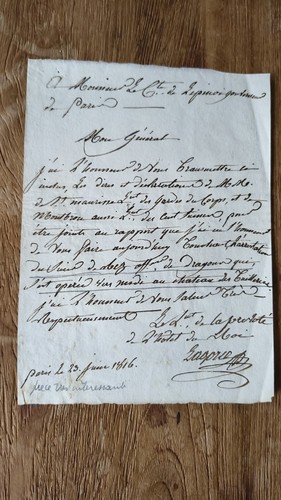 à Monsieur Le Cte de Lepinois gouverneur
de paris
Mon Général
j'ai L'honneur de Vous Transmettre ci
inclus, Les dires et déclarations de M.M.
de St mauris Lent des gardes du Corps, et de
aussi Lent des Cent Suisses, pour
être jointe au rapport que j'ai eu L'honneur
de Vous faire aujourdhuy Touchant L'arrestation
du Sieur de offer de dragons qui
s'est opérée vers midi au château des Tuileries
j'ai L'honneur de Vous Saluer Très
Respectueusement
Le Lt de la prevôté
de L'hotel du Roi
Lagorce
paris Le 23. juin 1816.
pièce très intéressante